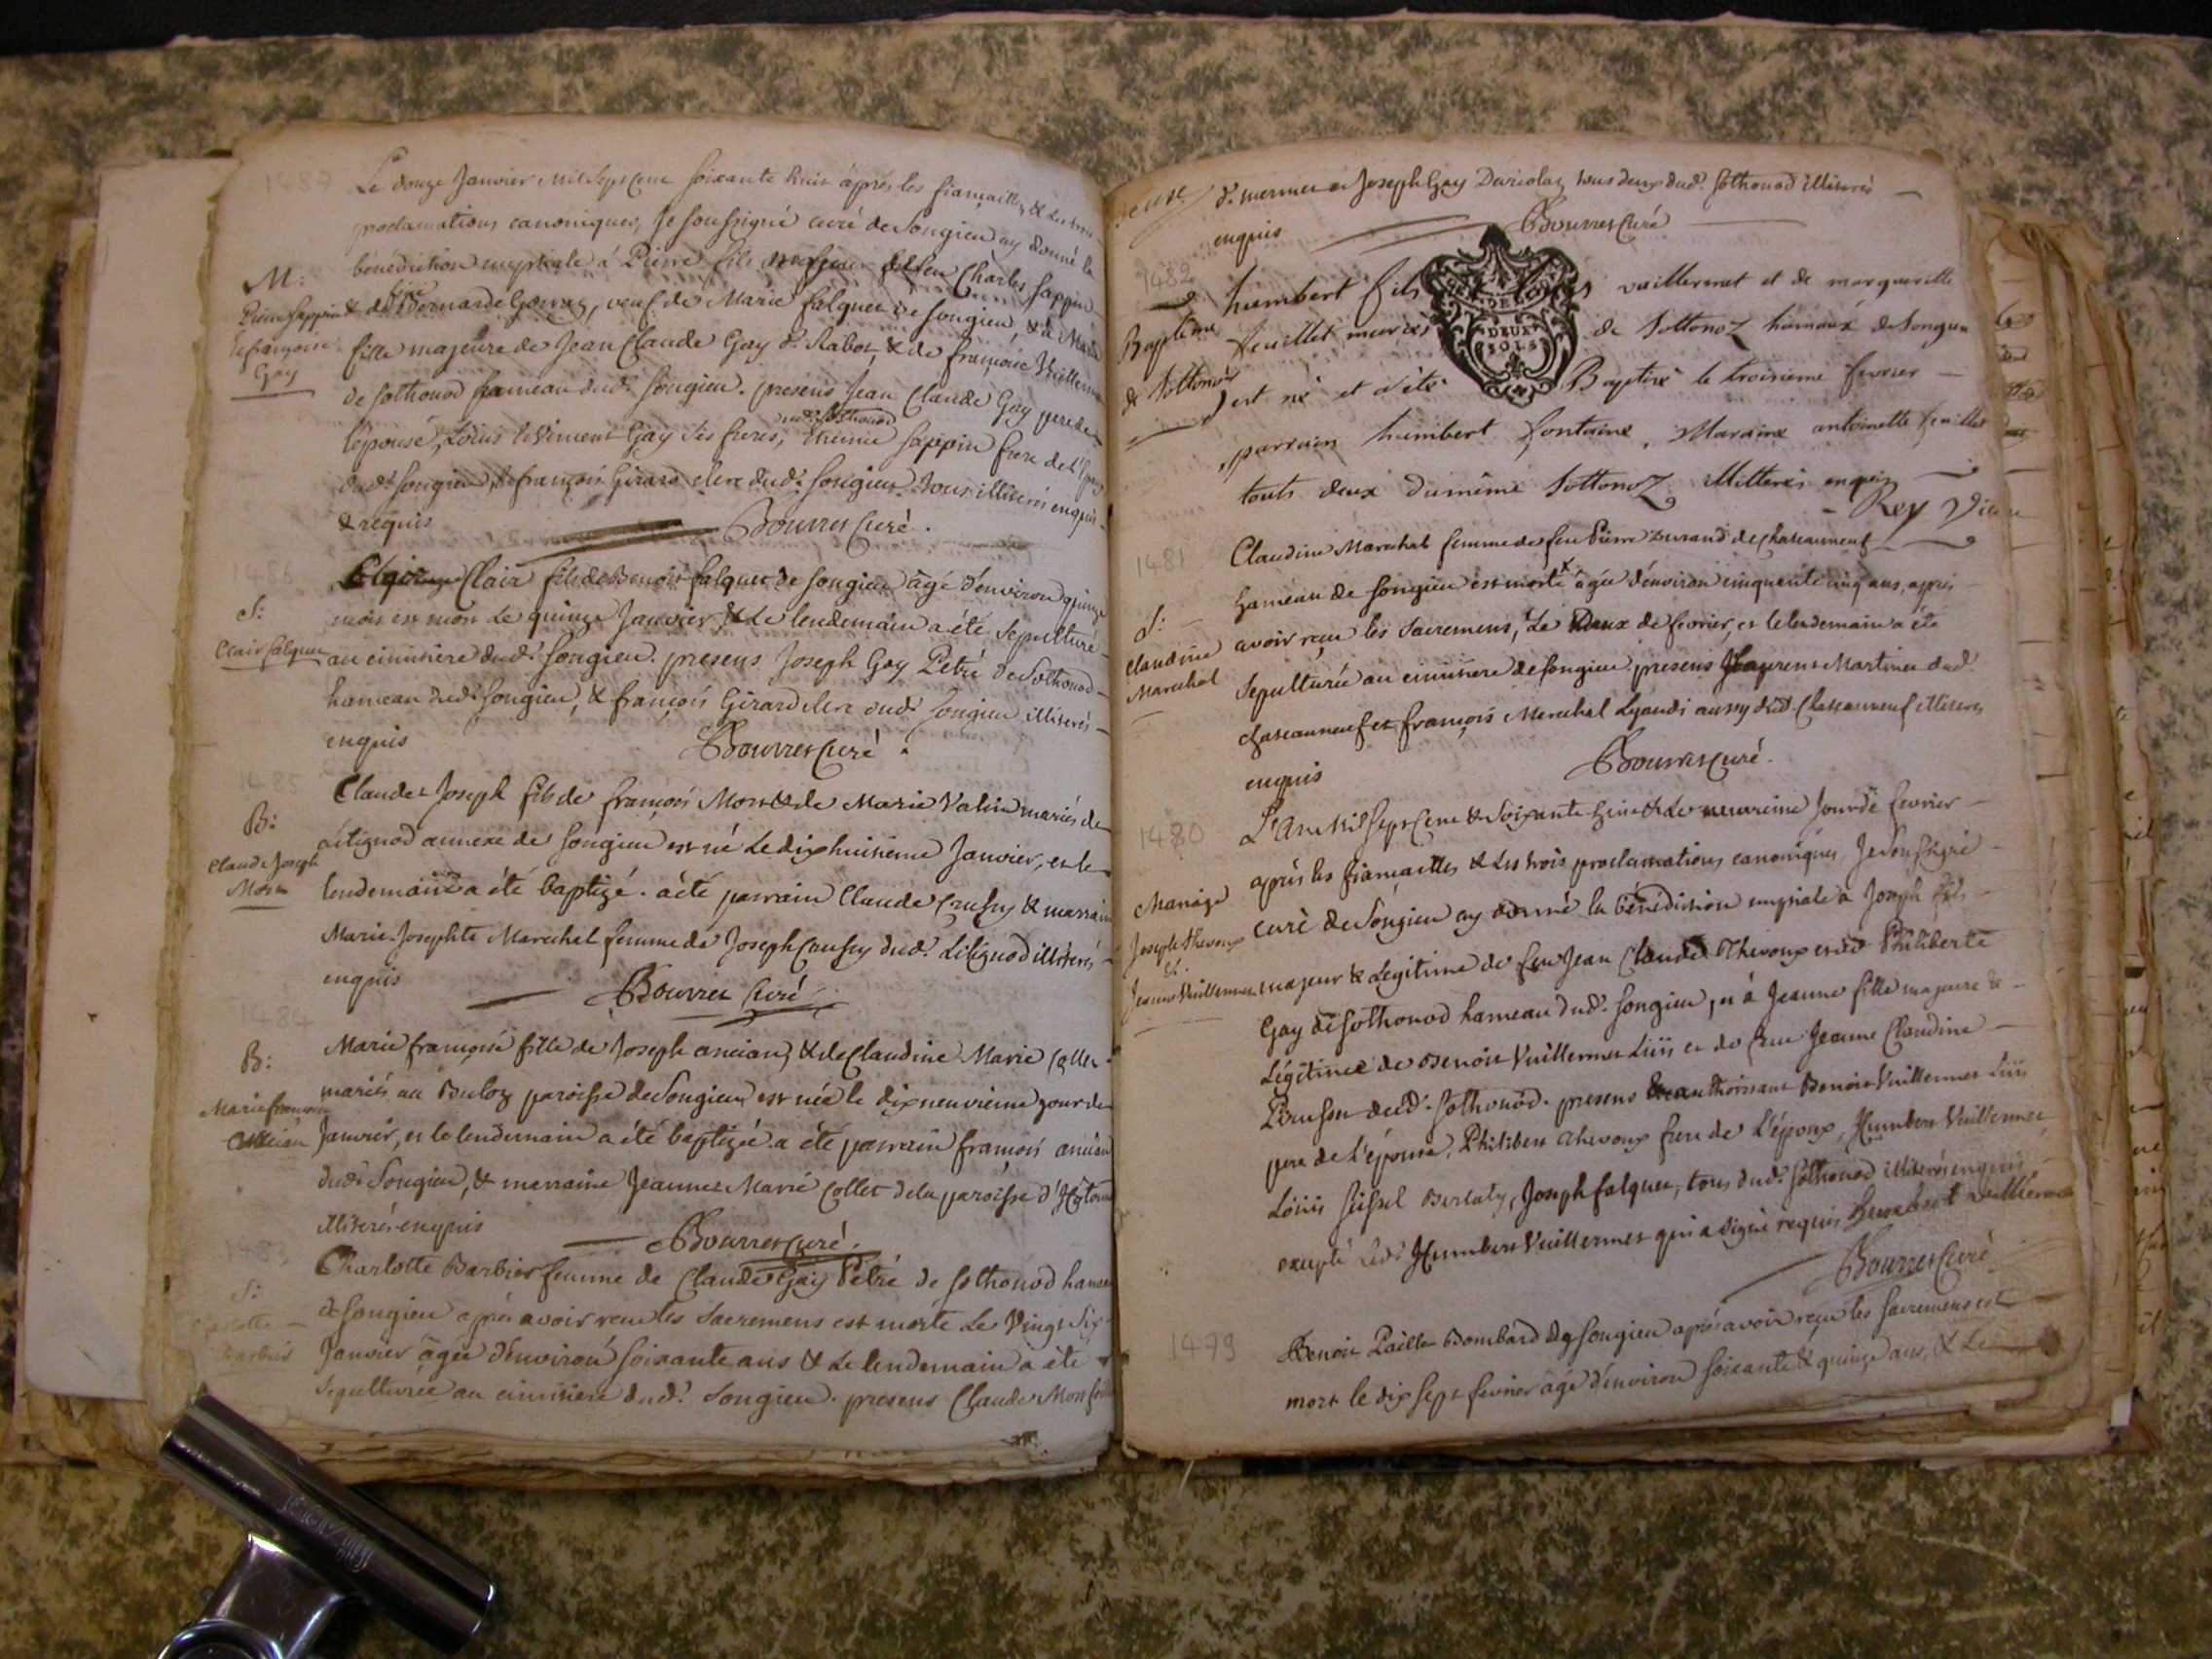 1487
Le douze Janvier mil Sept Cent Soixante huit après les fiançailles & les trois
proclamations canoniques, Je soussigné curé de Songieu ay donné la
bénédiction nuptiale à Pierre fils majeur de feu Charles Sappin
& de Bernarde veuf de Marie falquet de Songieu, & à Marie
fille majeure de Jean Claude Gay d. Rabot, & de françoise Vuillermet
de Sothonod hameau dud. Songieu. presens Jean Claude Gay pere de
l'épouse, Louis & Vincent Gay ses freres, dud. Sothonod Sappin frere de l'époux
dud. Songieu, & françois Girard clerc dud. Songieu. tous illiterés enquis
& requis
Bourret Curé.
M:
Pierre Sappin
& françoise
Gay
1486
Clair fils de Benoit falquet de Songieu âgé d'environ quinze
mois est mort le quinze Janvier, & le lendemain a été sepulturé
au cimitiere dud. Songieu. presens Joseph Gay Petré de Sothonod
hameau dud. Songieu, & françois Girard clerc dud. Songieu illiterés
enquis
Bourret Curé.
S:
Clair falquet
1485
Claude Joseph fils de françois Mort & de Marie Valin mariés de
Litignod annexe de Songieu est né le dixhuitieme Janvier, et le
lendemain a été baptizé. a été parrain Claude & marraine
Marie Josephte Marechal femme de Joseph dud. Litignod illiterés
enquis
Bourret Curé
B:
Claude Joseph
1484
Marie françoise fille de Joseph ancian, & de Claudine Marie Collet
mariés au Buloz paroisse de Songieu est née le dixneuvieme jour de
Janvier, et le lendemain a été baptizé. a été parrain françois ancian
dud. Songieu, & marraine Jeanne Marie Collet de la paroisse d'
illiterés enquis
Bourret Curé.
B:
Marie françoise
ancian
1483
Charlotte Barbier femme de Claude Gay Petré de Sothonod hameau
de Songieu après avoir reçu les Sacremens est morte Le Vingt Six
Janvier âgée d'environ soixante ans & le lendemain a été
Sepulturée au cimitiere dud. Songieu. presens Claude Mort
S:
Charlotte
Barbier
d. mermet et Joseph Gay tous deux dud. Sothonod illiterés
enquis
Bourret Curé
1482
humbert fils vuillermet et de marguerite
feuillet mariés de Sottonoz hameau de Songieu
est né et a été Baptizé le troisieme fevrier
parrain humbert fontaine, Maraine antoinette feuillet
touts deux du même Sottonoz illitterés enquis
Rey
DEUX
SOLS
Baptême
de Sottonoz
1481
Claudine Marechal femme de feu Pierre Durand de chateauneuf
hameau de Songieu est morte âgée d'environ cinquante cinq ans, après
avoir reçu les Sacremens, Le Deux de fevrier, et le lendemain a été
sepulturée au cimitiere de Songieu. presens Laurent Martinet dud.
chateauneuf et françois Marechal aussy dud. Chateauneuf illiterés
enquis
Bourret Curé.
S:
Claudine
Marechal
1480
L'An Mil Sept Cent & Soixante huit & Le neuvieme Jour de fevrier
après les fiançailles & les trois proclamations canoniques, Je Soussigné
curé de Songieu ay donné la bénédiction nuptiale à Joseph fils
majeur & Légitime de feu Jean Claude Thevoux et de Philiberte
Gay de Sothonod hameau dud. Songieu, et à Jeanne fille majeure &
Légitime de Benoit Vuillermet Liüs et de feue Jeanne Claudine
dud. Sothonod. presens & authorisant Benoit Vuillermet Liüs
pere de l'épouse, Philibert Thevoux frere de l'époux, Humbert Vuillermet
Louis Seissel Joseph falquet, tous dud. Sothonod illiterés enquis
excepté led. Humbert Vuillermet qui a signé requis humbert vuillermet
Bourret Curé
Mariage
Joseph Thevoux
&
Jeanne Vuillermet
1479
Benoit Paillet Bombard de Songieu après avoir reçu les Sacremens est
mort le dix sept fevrier âgé d'environ soixante & quinze ans, & Le